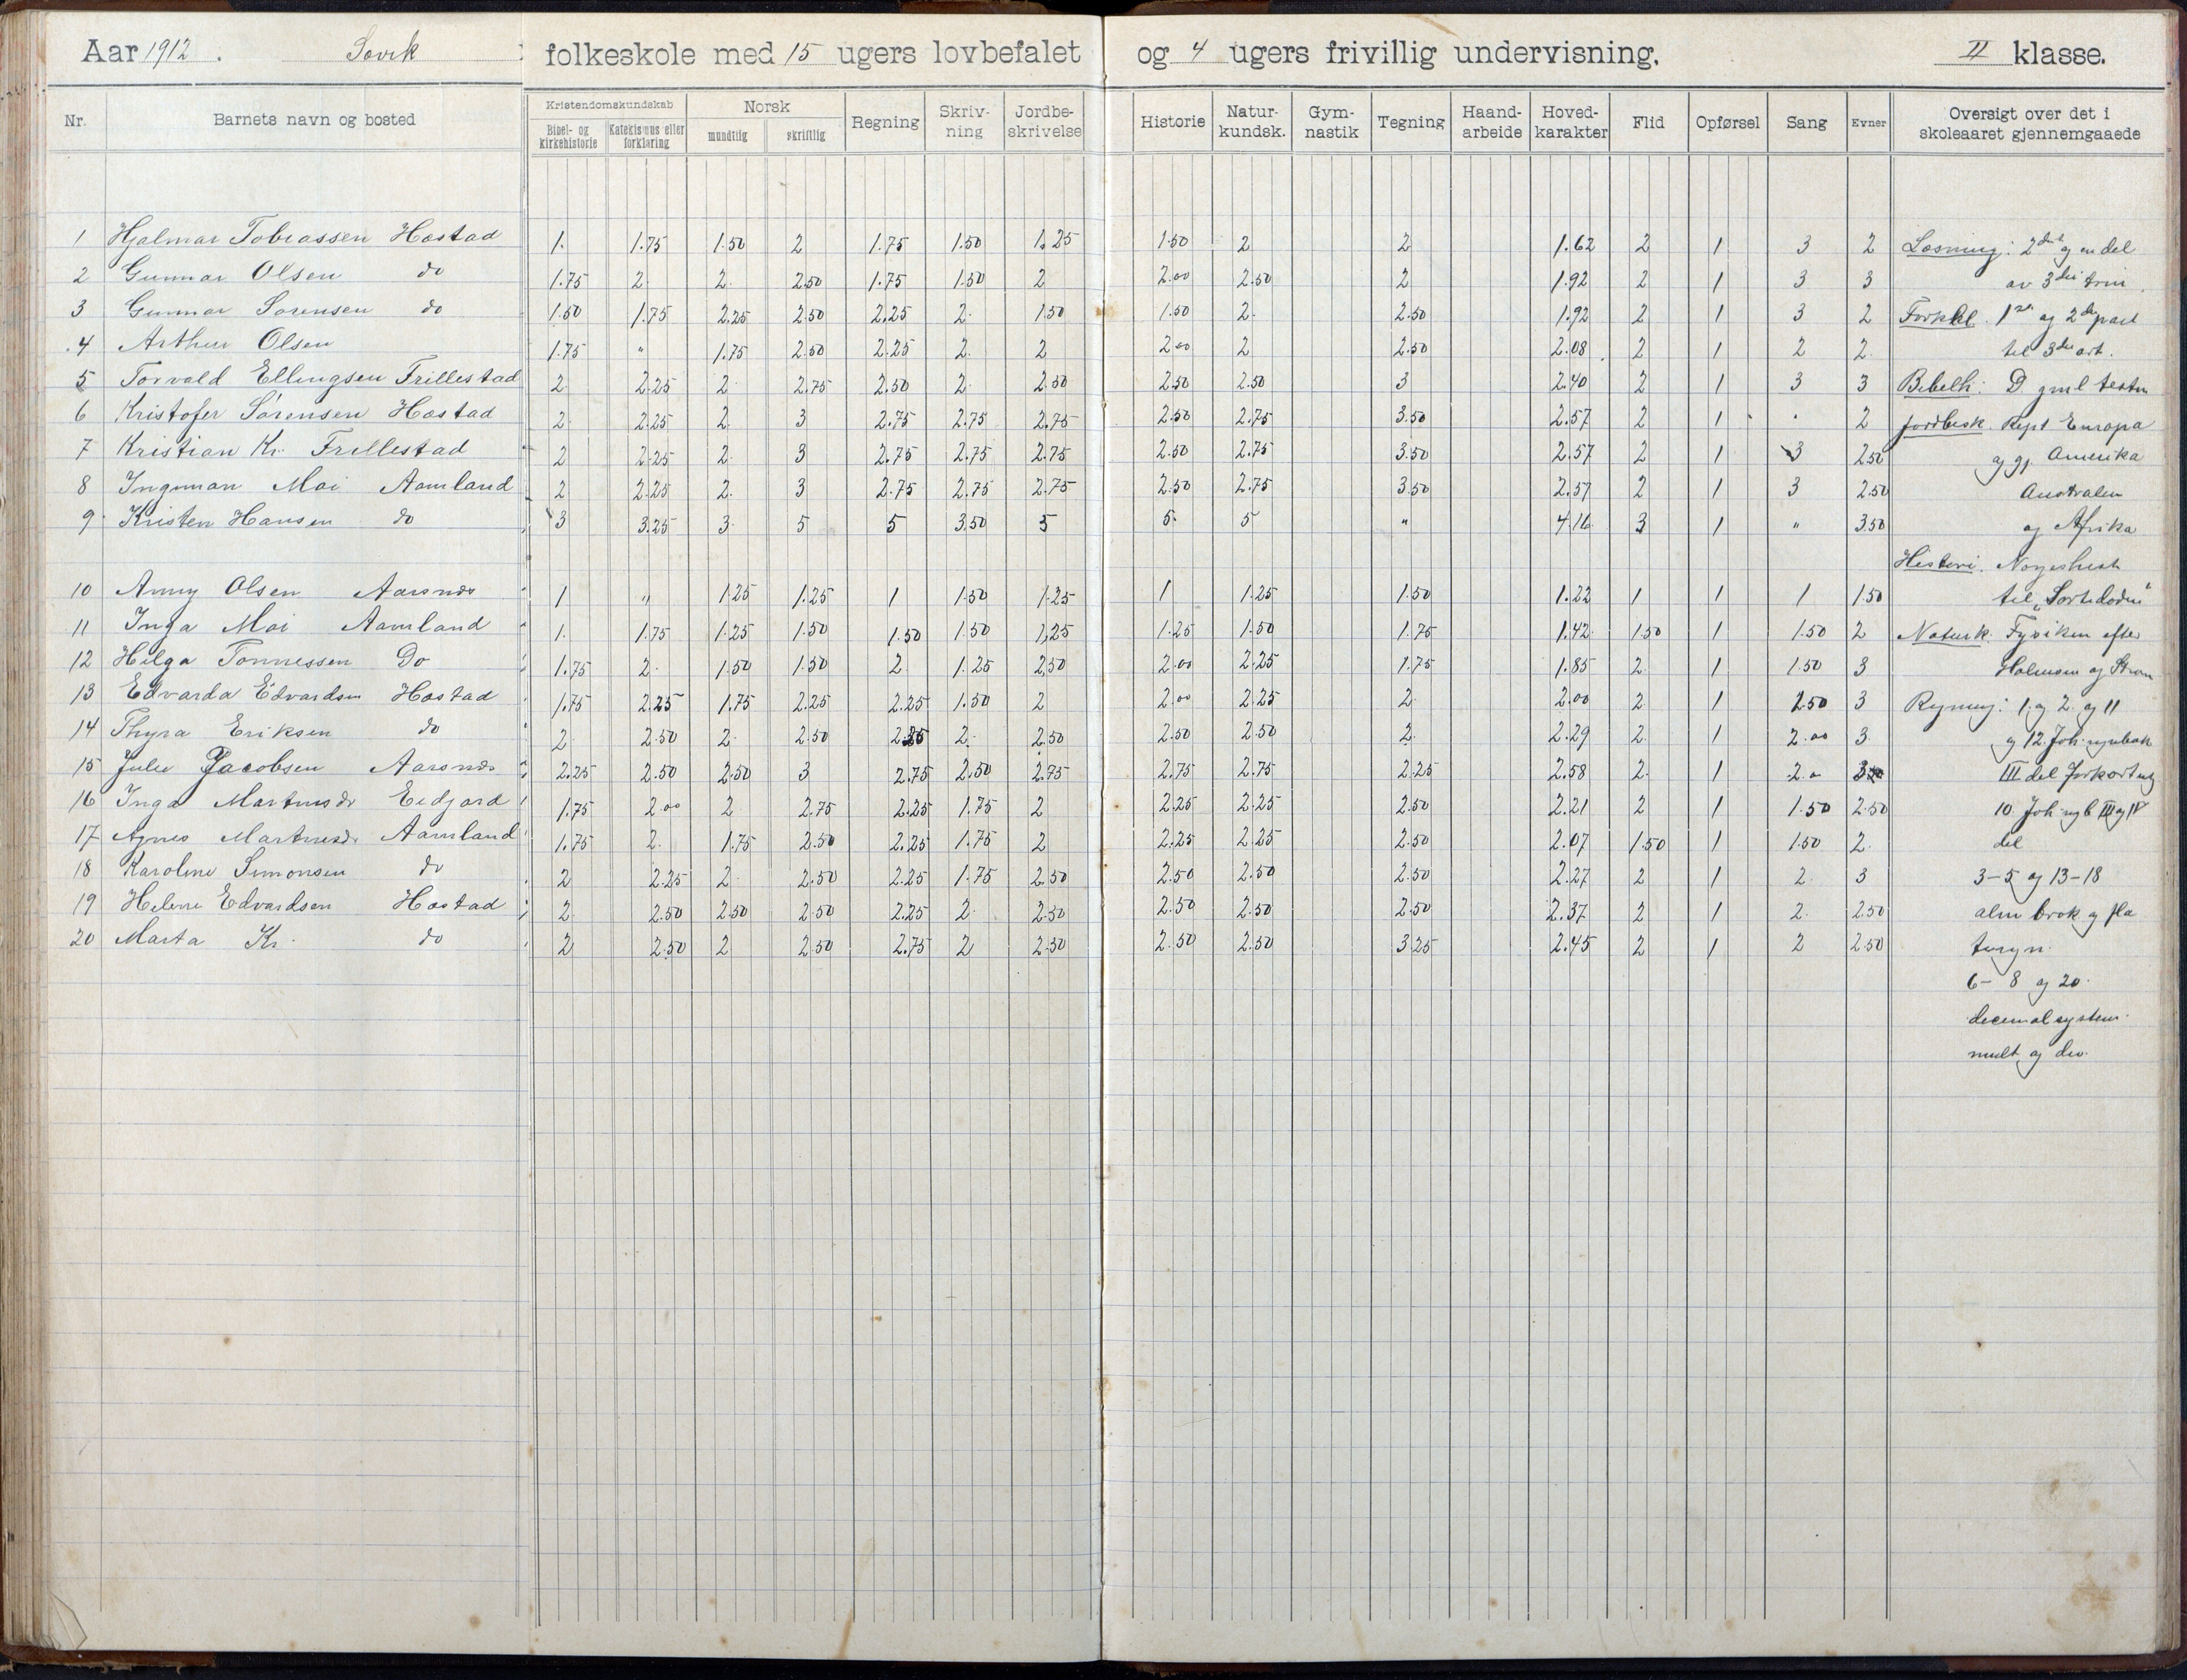 Aar 1912. Søvik folkeskole med 15 ugers lovbefalet og 4 ugers frivillig undervisning. II klasse.
Nr. Barnets navn og bosted Kristendomskundskab Bibel- og kirkehistorie Katekismus eller forklaring Norsk mundtlig skriftlig Regning Skriv-ning Jordbe-skrivelse Historie Natur-kundsk. Gym-nastik Tegning Haand-arbeide Hoved-karakter Flid Opførsel Sang Evner Oversigt over det i skoleaaret gjennemgaaede
1 Hjalmar Tobiassen Hæstad 1. 1.75 1.50 2 1.75 1.50 1.25 1.50 2 2 1.62 2 1 3 2 Læsning: 2det og en del
2 Gunnar Olsen do 1.75 2 2. 2.50 1.75 1.50 2 2.00 2.50 2 1.92 2 1 3 3 av 3die trin.
3 Gunnar Sørensen do 1.50 1.75 2.25 2.50 2.25 2. 1.50 1.50 2. 2.50 1.92 2 1 3 2 Forkl. 1ste og 2den part
4 Arthur Olsen 1.75 " 1.75 2.50 2.25 2. 2 2.00 2 2.50 2.08 2 1 2 2. til 3die art.
5 Torvald Ellingsen Frillestad 2. 2.25 2. 2.75 2.50 2. 2.50 2.50 2.50 3 2.40 2 1 3 3 Bibelh: D. gml testm
6 Kristofer Sørensen Hæstad 2. 2.25 2. 3 2.75 2.75 2.75 2.50 2.75 3.50 2.57 2 1 2 Jordbesk. Rept Europa
7 Kristian Kr. Frillestad 2 2.25 2. 3 2.75 2.75 2.75 2.50 2.75 3.50 2.57 2 1 3 2.50 og gj. Amerika
8 Ingeman Moi Aamland 2 2.25 2. 3 2.75 2.75 2.75 2.50 2.75 3.50 2.57 2 1 3 2.50 Australen
9 Kristen Hansen do 3 3.25 3. 5 5 3.50 5 5. 5 " 4.16 3 1 " 3.50 og Afrika
Histori. Norgeshist
10 Anny Olsen Aarsnæs 1 " 1.25 1.25 1 1.50 1.25 1 1.25 1.50 1.22 1 1 1 1.50 til "Sortedøden"
11 Inga Moi Aamland 1. 1.75 1.25 1.50 1.50 1.50 1,25 1.25 1.50 1.75 1.42 1.50 1 1.50 2 Naturk. Fysiken efter
12 Helga Tønnessen Do 1.75 2. 1.50 1.50 2 1.25 2,50 2.00 2.25 1.75 1.85 2 1 1.50 3 Holmsen og Strøm
13 Edvarda Edvardsen Hæstad 1.75 2.25 1.75 2.25 2.25 1.50 2 2.00 2.25 2. 2.00 2 1 2.50 3 Regning: 1. og 2. og 11
14 Thyra Eriksen do 2. 2.50 2. 2.50 2. 2.50 2.50 2.50 2. 2.29 2. 1 2.00 3 og 12. Joh. regnebok
15 Julie Jacobsen Aarsnæs 2.25 2.50 2.50 3 2.75 2.50 2.75 2.75 2.75 2.25 2.58 2. 1 2.0 III del forkortning
16 Inga Martinsdr Eidjord 1.75 2.00 2 2.75 2.25 1.75 2 2.25 2.25 2.50 2.21 2 1 1.50 2.50 10. Joh. rgb III og IV
17 Agnes Martinsdr Aamland 1.75 2. 1.75 2.50 2.25 1.75 2 2.25 2.25 2.50 2.07 1.50 1 1.50 2. del
18 Karoline Simonsen do 2 2.25 2. 2.50 2.25 1.75 2.50 2.50 2.50 2.50 2.27 2 1 2. 3 3-5 og 13-18
19 Helene Edvardsen Hæstad 2. 2.50 2.50 2.50 2.25 2. 2.50 2.50 2.50 2.50 2.37 2 1 2. 2.50 alm brøk og fla
20 Marta Kr. do 2 2.50 2 2.50 2.75 2 2.50 2.50 2.50 3.25 2.45 2 1 2 2.50
6-8 og 20.
decimalsystem.
mult og div.